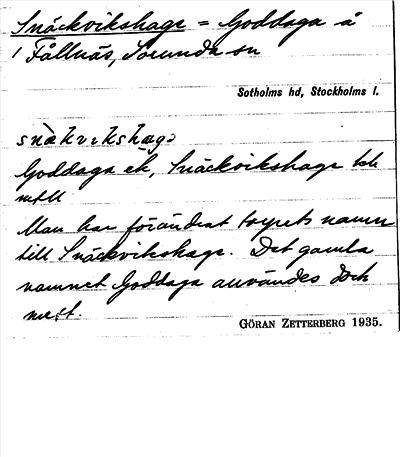 Snäckvikshage = Goddaga å
/ Fållnäs, Sorunda sn
Sotholms hd, Stockholms l.
snäkvikshaga
Goddaga ek, Snäckvikshage
Man har förändrat torpets namn
till Snäckvikshage. Det gamla
namnet Goddaga användes dock
mest.
GÖRAN ZETTERBERG 1935.